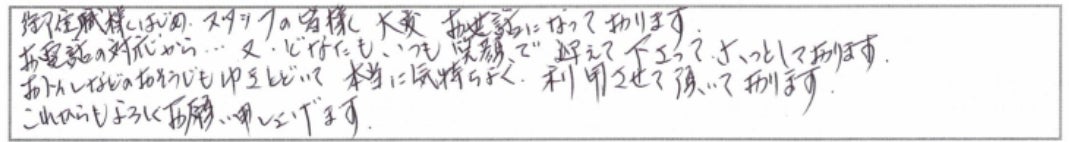 御住職様はじめ、スタッフの皆様に大変お世話になっております。
お電話の対応から…又、どなたも、いつも笑顔で迎えて下さって、ほっとしております。
おトイレなどのおそうじも行きとどいて本当に気持ちよく、利用させて頂いております。
これからもよろしくお願い申し上げます。